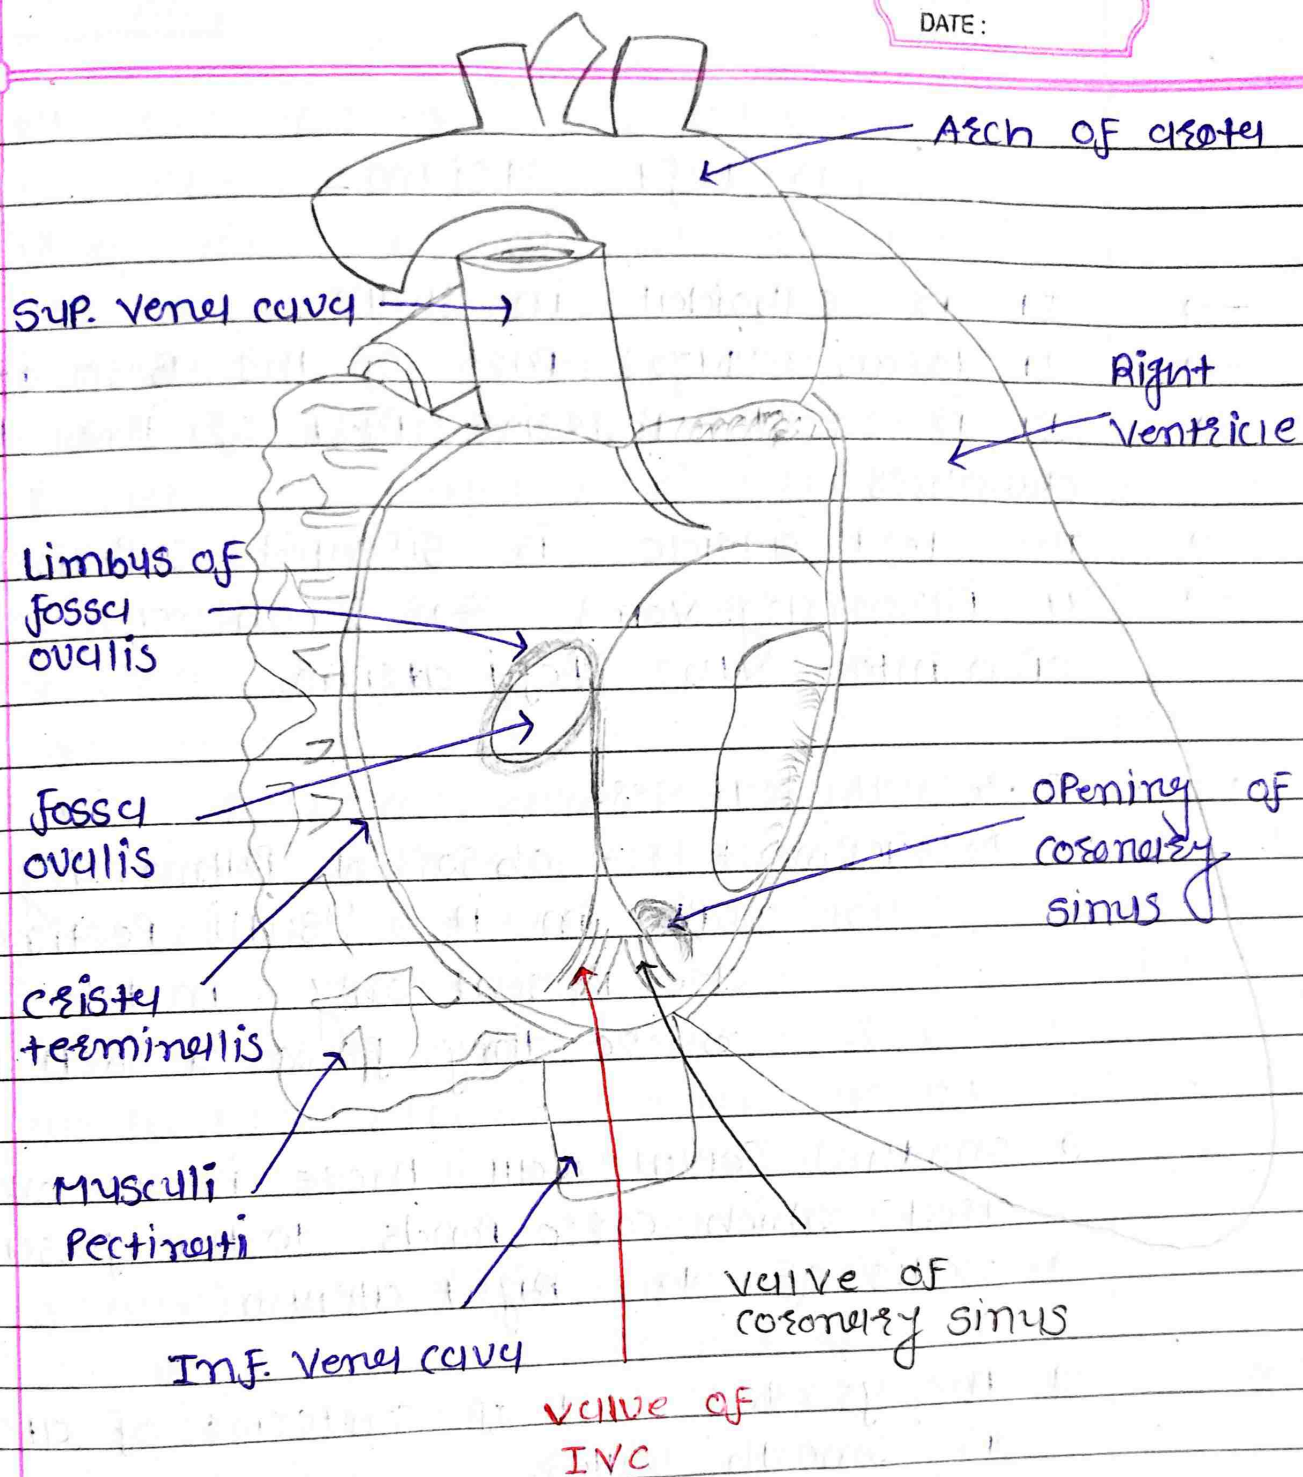 DATE:
Arch of aorta
Sup. vena cava
Right
ventricle
Limbus of
fossa
ovalis
fossa
ovalis
opening of
coronary
sinus
crista
terminalis
Musculi
Pectinati
valve of
coronary sinus
Inf. vena cava
valve of
IVC